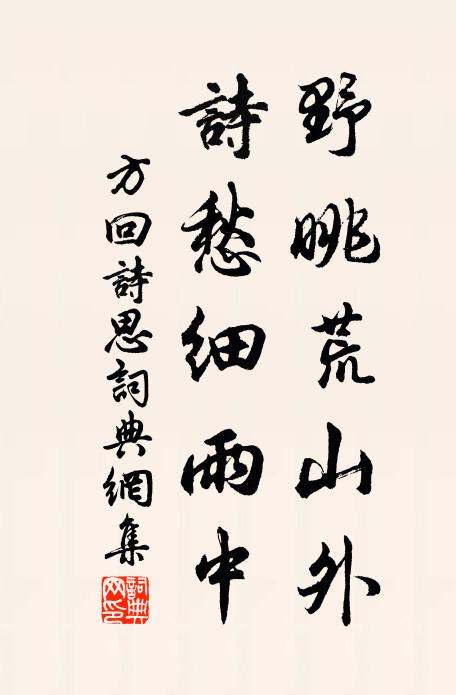 野眺荒山外
詩愁細雨中
方回詩思詞典網集
詞典網印